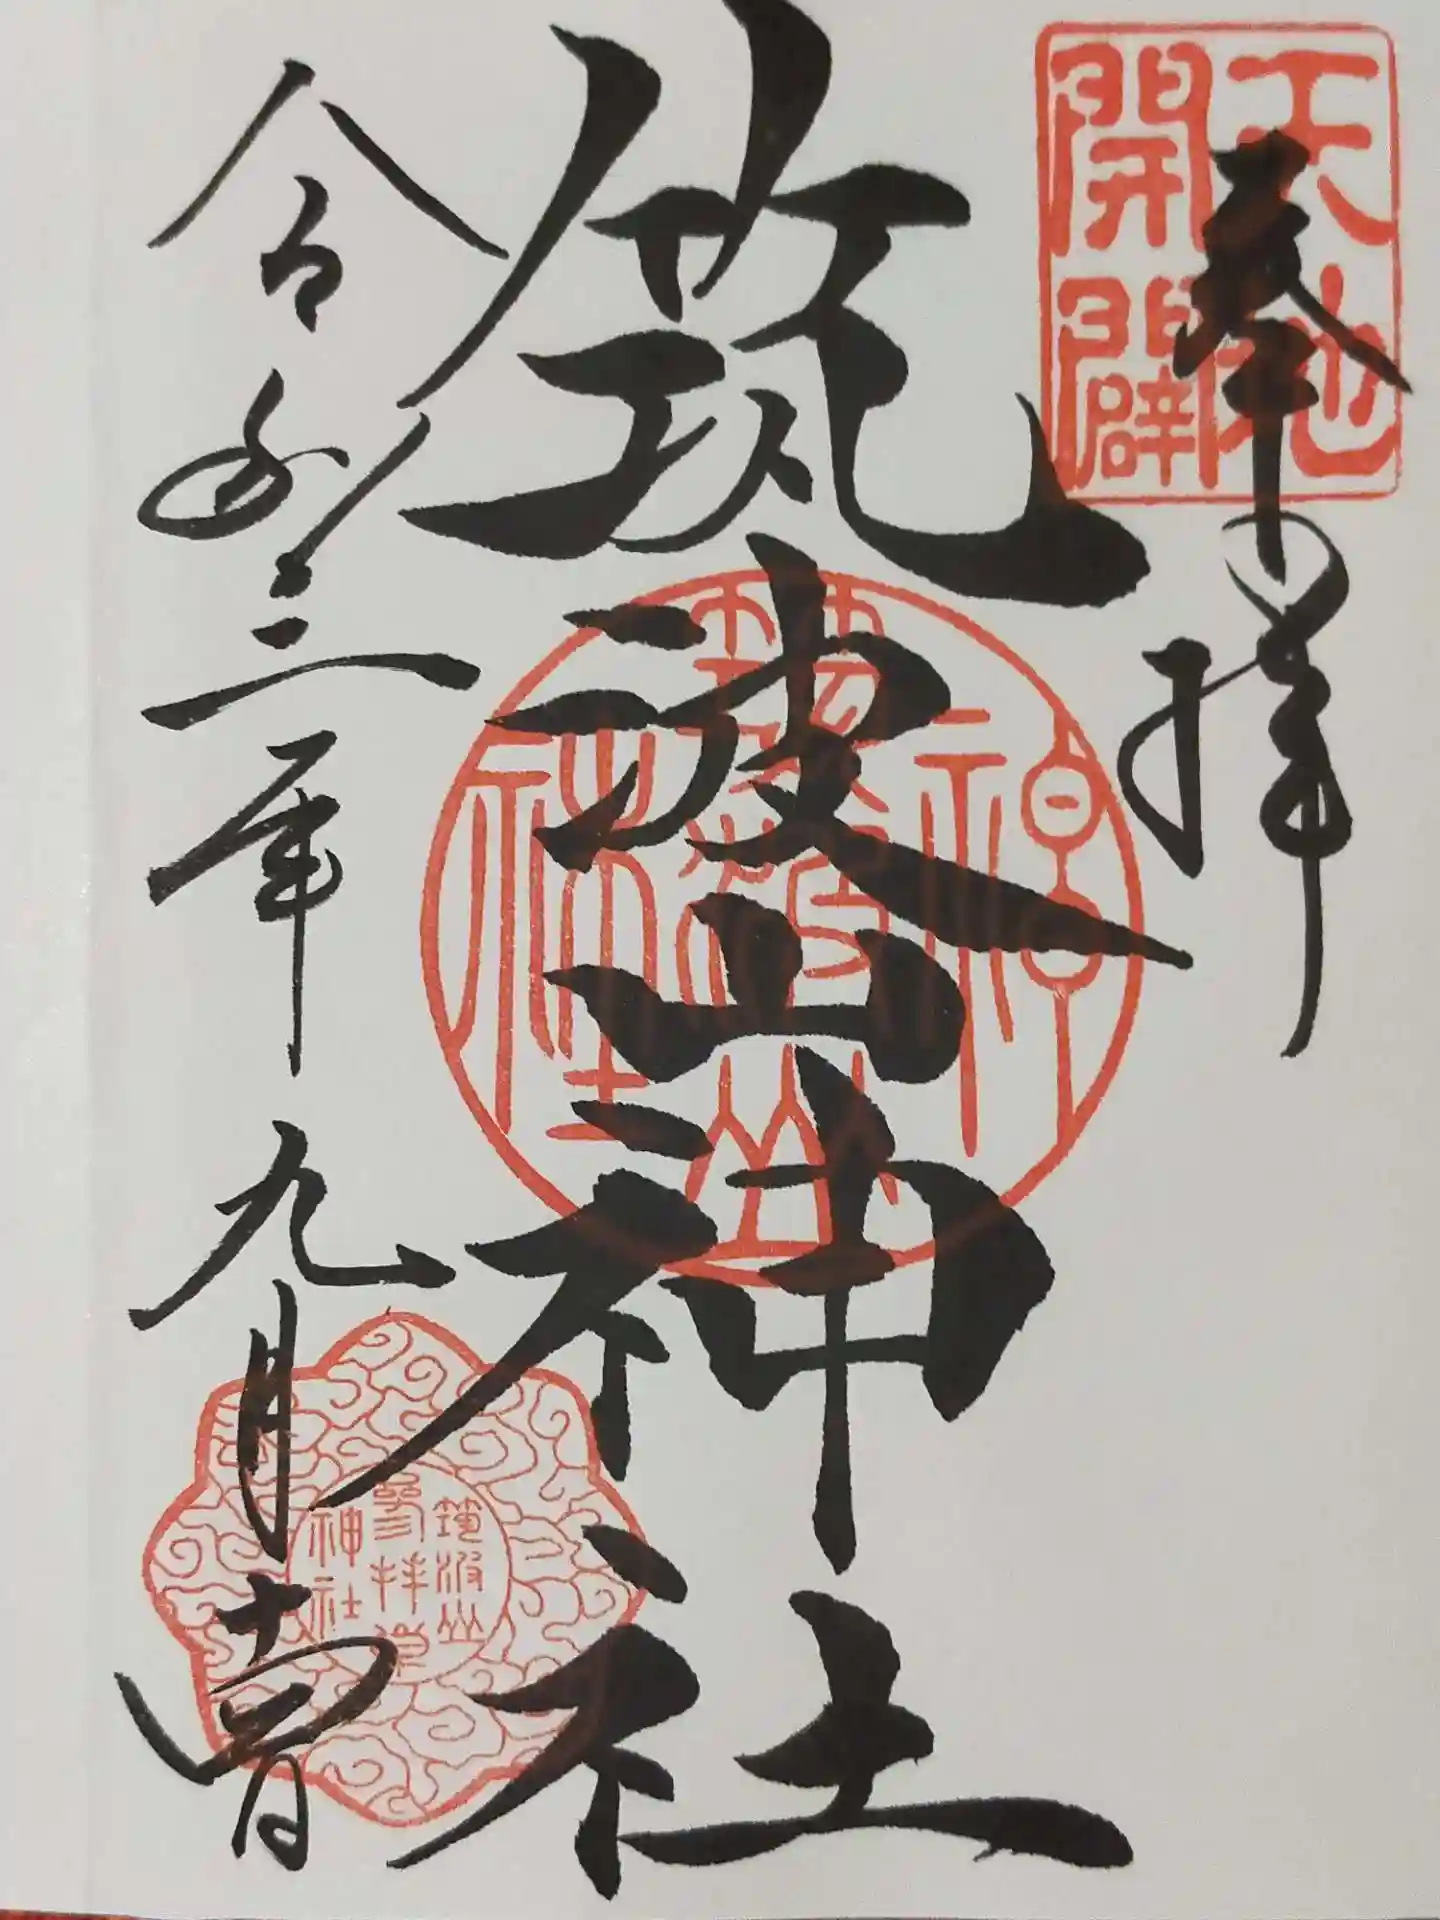 天地
開闢
奉拝
筑波山神社
筑波山
神社
令和三年九月
筑波山
参拝
神社